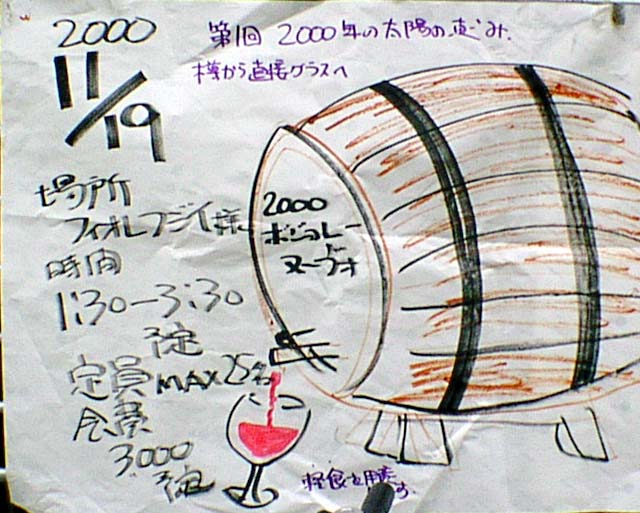 2000
11/19
第1回 2000年の太陽の恵み
樽から直接グラスへ
場所
フィオレフジイ様
時間
1:30-3:30
予定
定員MAX25名
会費
3000
予定
2000
ボジョレー
ヌーヴォ
軽食を用意